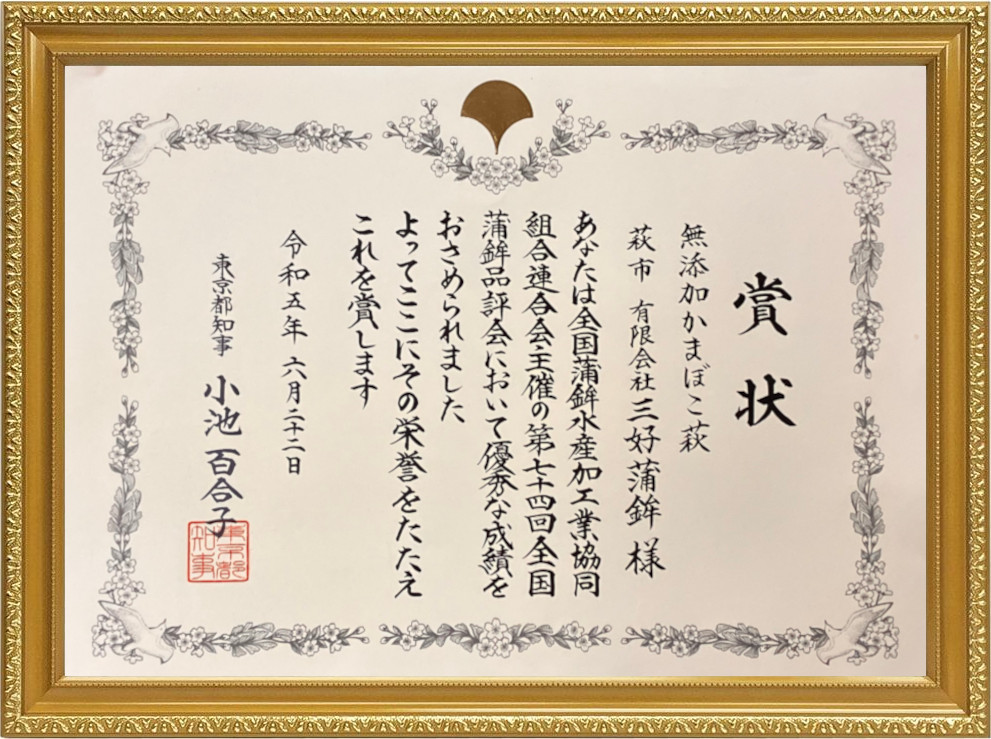 賞状
無添加かまぼこ萩
萩市 有限会社 三好蒲鉾 様
あなたは全国蒲鉾水産加工業協同
組合連合会主催の第七十四回全国
蒲鉾品評会において優秀な成績を
おさめられました
よってここにその栄誉をたたえ
これを賞します
令和五年 六月二十二日
東京都知事 小池百合子
東京都
知事